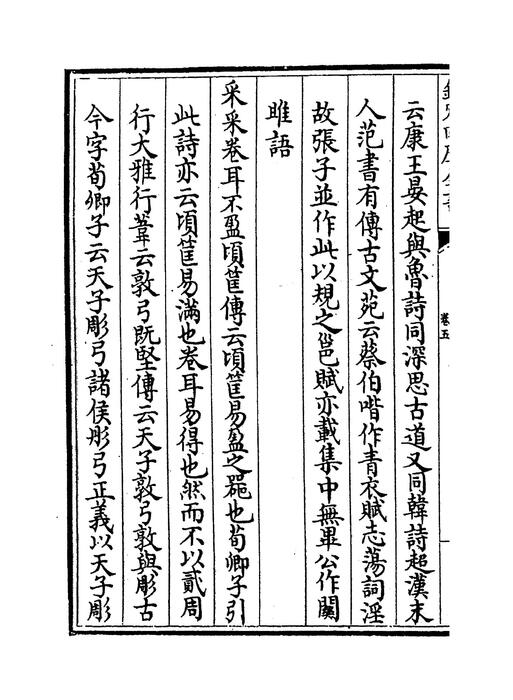 云康王晏起與魯詩同深思古道又同韓詩超漢末
人范書有傳古文苑云蔡伯喈作青衣賦志蕩詞淫
故張子並作此以規之邕賦亦載集中無畢公作關
雎語
采采卷耳不盈頃筐傳云頃筐易盈之器也荀卿子引
此詩亦云頃筐易滿也卷耳易得也然而不以貳周
行大雅行葦云敦弓既堅傳云天子敦弓敦與彫古
今字荀卿子云天子彫弓諸侯彤弓正義以天子彫
卷五